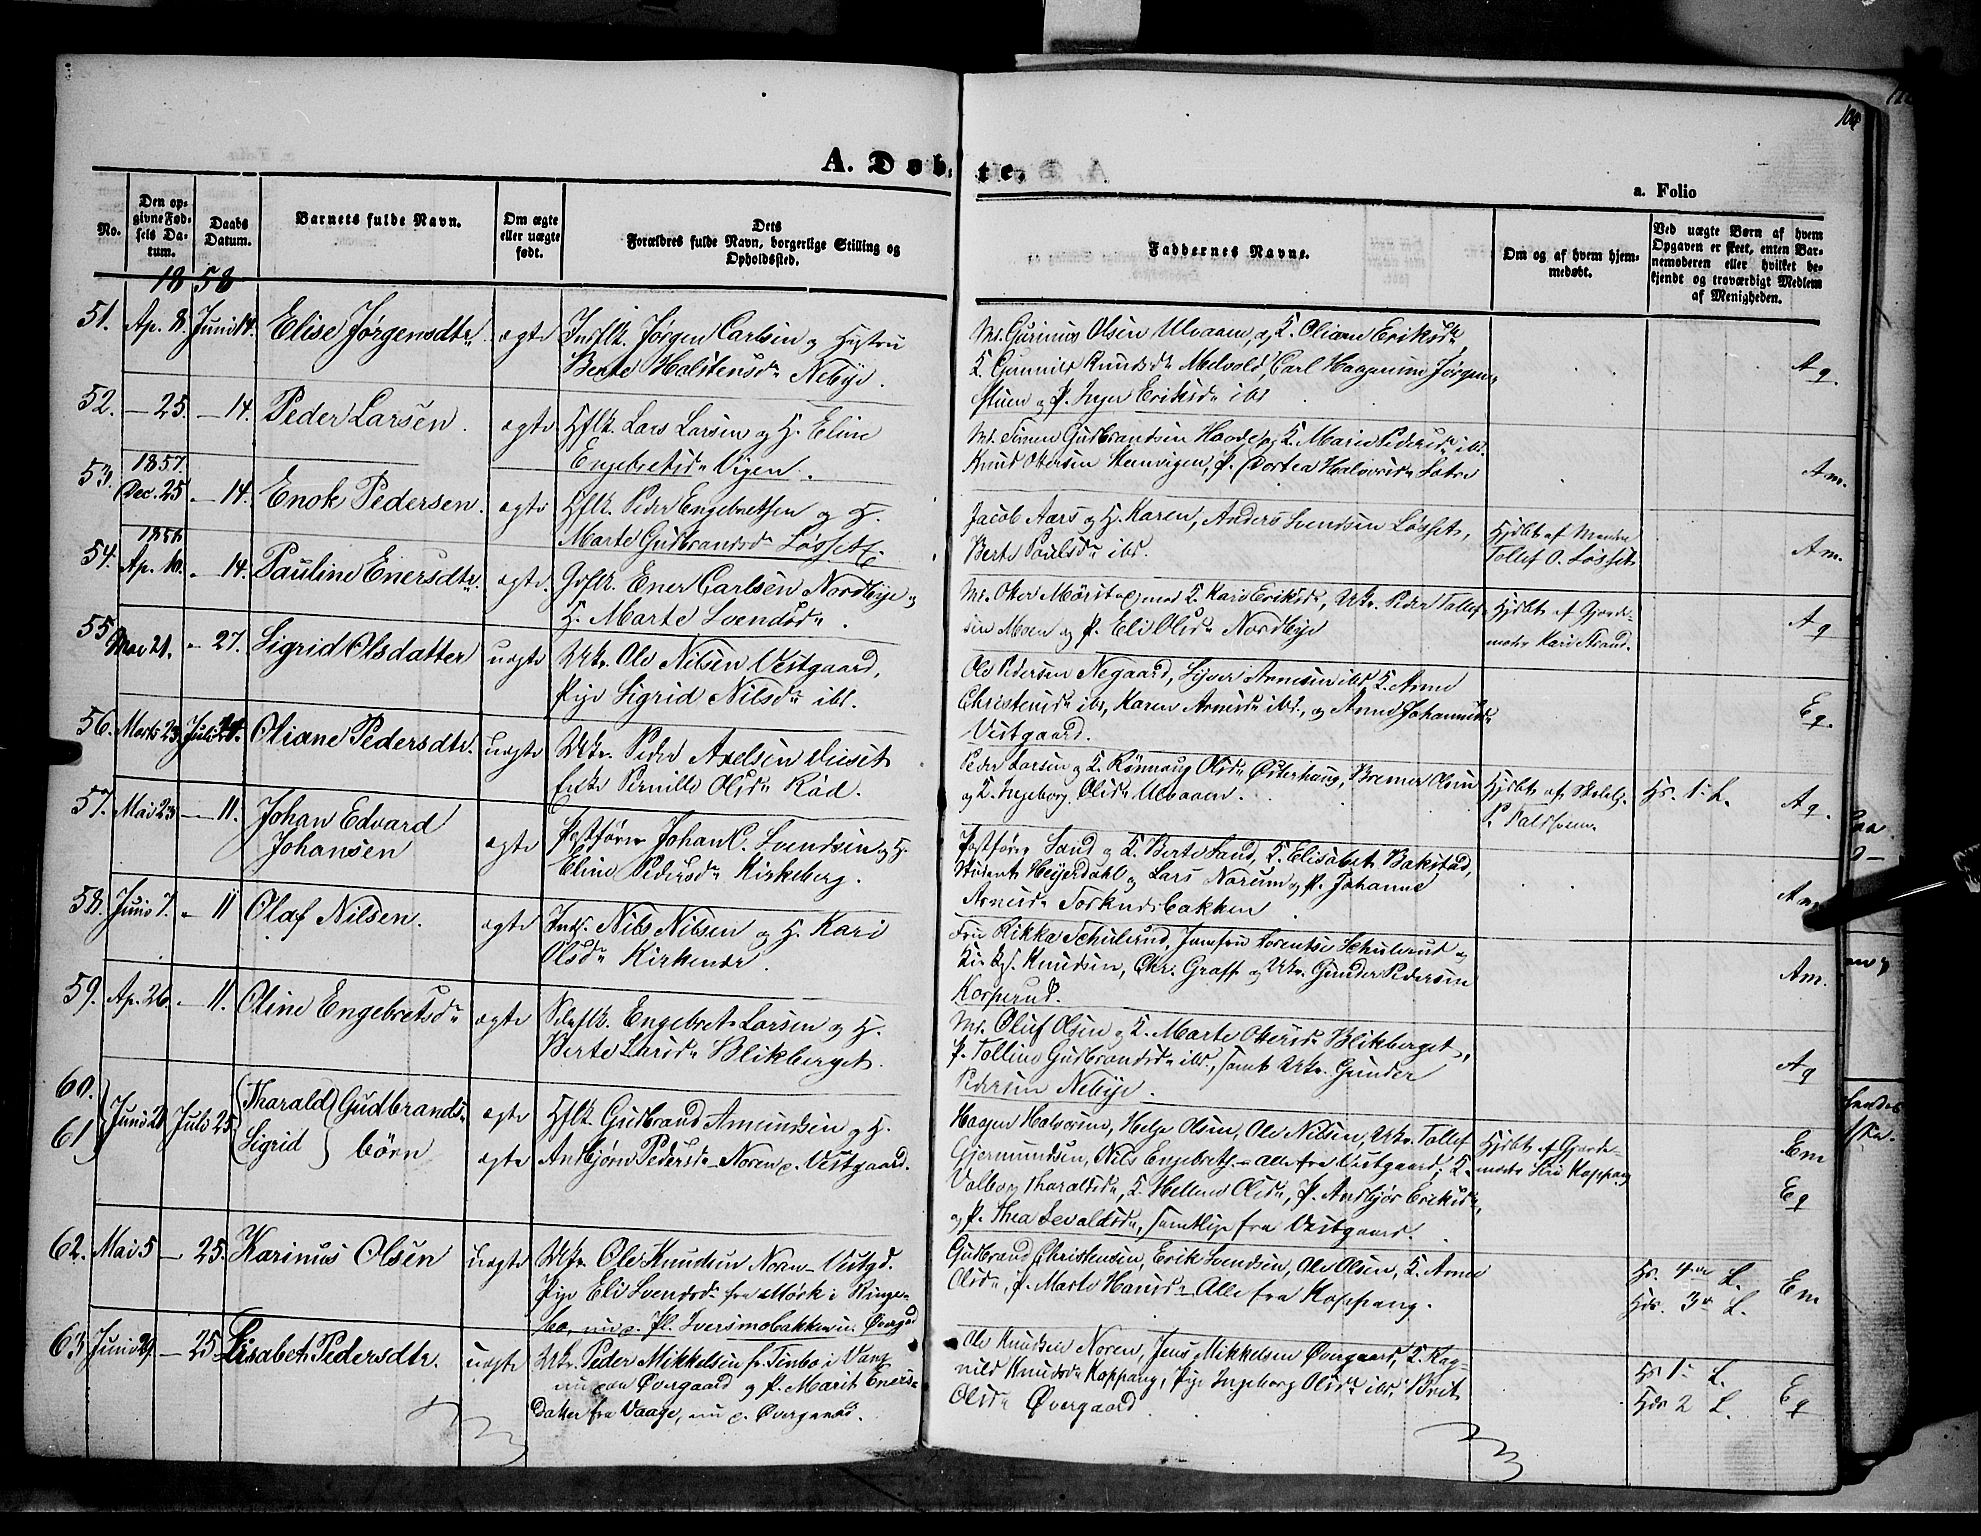 104
A. Døbte.
a. Folio
No.
Den op-
givne Fød-
sels Da-
tum.
Daabs
Datum.
Barnets fulde Navn.
Om ægte
eller uægte
født.
Dets
Forældres fulde Navn, borgerlige Stilling og
Opholdssted.
Faddernes Navne.
Om og af hvem hjem-
medøbt.
Ved uægte Børn af hvem
Opgaven er skeet, enten Bar-
nemoderen eller hvilket be-
kjendt og troværdigt Medlem
af Menigheden.
1858
51. Ap. 8. Juni 14. Elise Jørgensdtr. ægte Indflk. Jørgen Carlsen og Hustru
Berte Holstensdr Nebye.
Mr. Gurinus Olsen Ulvaaen, og K. Oliane Eriksdr,
K. Gunnild Knudsdr Melvold, Carl Haagensen Jørgen-
stuen og P. Inger Eriksdr ibs
Ag.
52. - 25. - 14. Peder Larsen. ægte Hflk. Lars Larsen og H. Eline
Engebretsdr Vigen.
Mr. Simen Gudbrandsen Haode og K. Marie Pedersdr ibs.
Knud Ottersen Stenvigen, P. Dortea Halvorsdr Sætre
Am.
1857.
53. Dec. 25 - 14. Enok Pedersen. ægte Hflk. Peder Engebretsen og H.
Marte Gudbrandsdr Løsset.
Jacob Aars og H. Karen, Anders Svendsen Løsset,
Berte Paulsdr ibs.
Hjdbt af Manden
Tollef O. Løsset
Am.
1858
54. Ap. 10. - 14. Pauline Enersdtr. ægte. Grflk. Ener Carlsen Nordbye og
H. Marte Svendsdr.
Mr. Otter Mørstad med K. Kari Eriksdr, Ukr. Peder Tollef-
sen Moen og P. Eli Olsdr Nordbye
Hjdbt af Gjorde-
moder Kari Strand.
Ag
55 Mai 21. - 27. Sigrid Olsdatter uægte Ukr. Ole Nilsen Vestgaard,
Pige Sigrid Nilsdr ibs.
Ole Pedersen Negaard, Syver Arnesen ibs K. Anne
Christensdr ibs, Karen Arnesdr ibs., og Anne Johannesdr
Vestgaard.
Eg.
56. Marts 23. Juli 11. Oliane Pedersdtr. uægte Ukr. Peder Axelsen Vieset
Enke Pernille Olsdr Rød.
Peder Larsen og K. Rønnaug Olsdr Østerhaug, Bremer Olsen
og K. Ingeborg Olsdr Ulvaaen.
Hjdbt af Skolel.
P. Paldsveen
Hs. 1. L.
Ag.
57. Mai 23 - 11. Johan Edvard
Johansen
ægte Postfører Johan C. Svendsen og H.
Eline Pedersdr Kirkeberg.
Postfører Sand og K. Berte Sand, K. Elisabet Bakstad,
Student Heyerdahl og Lars Norum og P. Johanne
Arnesdr Torkudsbakken
Am
58. Juni 7. - 11 Olaf Nilsen. ægte Inds. Nils Nilsen og H. Kari
Olsdr Kirkenær.
Fru Rikka Schulerud, Jomfru Lorentse Schulerud og
Knudsen, Chr. Graff og Ukr. Gunder Pedersen
Korperud.
Am.
59. Ap. 26. - 11. Oline Engebretsdr ægte Engebret Larsen og H.
Berte Larsdr Blikberget.
Mr. Oluf Olsen og K. Marte Ottersdr Blikberget,
P. Tolline Gudbrandsdr ibs., samt Ukr. Gunder
Pedersen Nebye.
Ag
60. Juni 21 Juli 25. Tharald Gudbrands- ægte Hflk. Gudbrand Amundsen og H.
61 Sigrid børn ægte Anbjørn Pedersdr Noren, p. Vestgaard.
Hagen Halvorsen, Helge Olsen, Ole Nilsen, Ukr. Tollef
Gjermundsen, Nils Engebretsen - alle fra Vestgaard, K.
Valborg Tharaldsdr, K. Hellene Olsdr, P. Anbjør Eriksdr,
og P. Thea Sevaldsdr, samtlige fra Vestgaard.
Hjdbt af Gjorde-
moder Siri Koppang
Em
Eg
62. Mai 5 - 25. Karinus Olsen uægte Ukr. Ole Knudsen Noren - Vestgd.
Pige Eli Svendsdr fra Mørk i Ringe-
bo, nu p. Pl. Iversmobakken u. Øvergd
Gudbrand Christensen, Erik Svendsen, Ole Olsen, K. Anne
Olsdr, P. Marte Hansdr - Alle fra Koppang.
Hs. 4de L.
Hds. 3die L.
Em
63 Juni 29. - 25 Lisabet Pedersdtr. uægte Ukr. Peder Mikkelsen fr. Finbo i Vang
nu paa Øvergaard og P. Marit Eners-
datter fra Vaage, nu p. Øvergaard.
Ole Knudsen Noren, Jens Mikkelsen Øvergaard, K. Rag-
nild Knudsdr Koppang, Pige Ingeborg Olsdr ibs. Brit
Olsdr Øvergaard
Hs 1. L.
Hds 2 L.
Eg